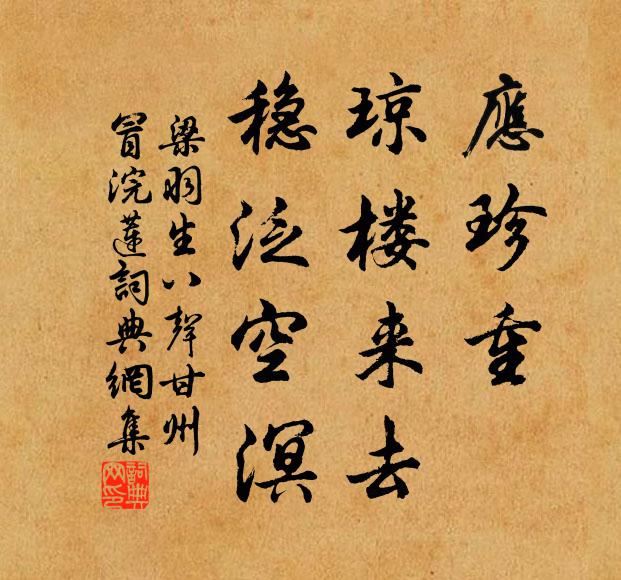 應珍重
琼楼来去
稳泛空溟
梁羽生八聲甘州
冒浣蓮詞典網集
詞典网印